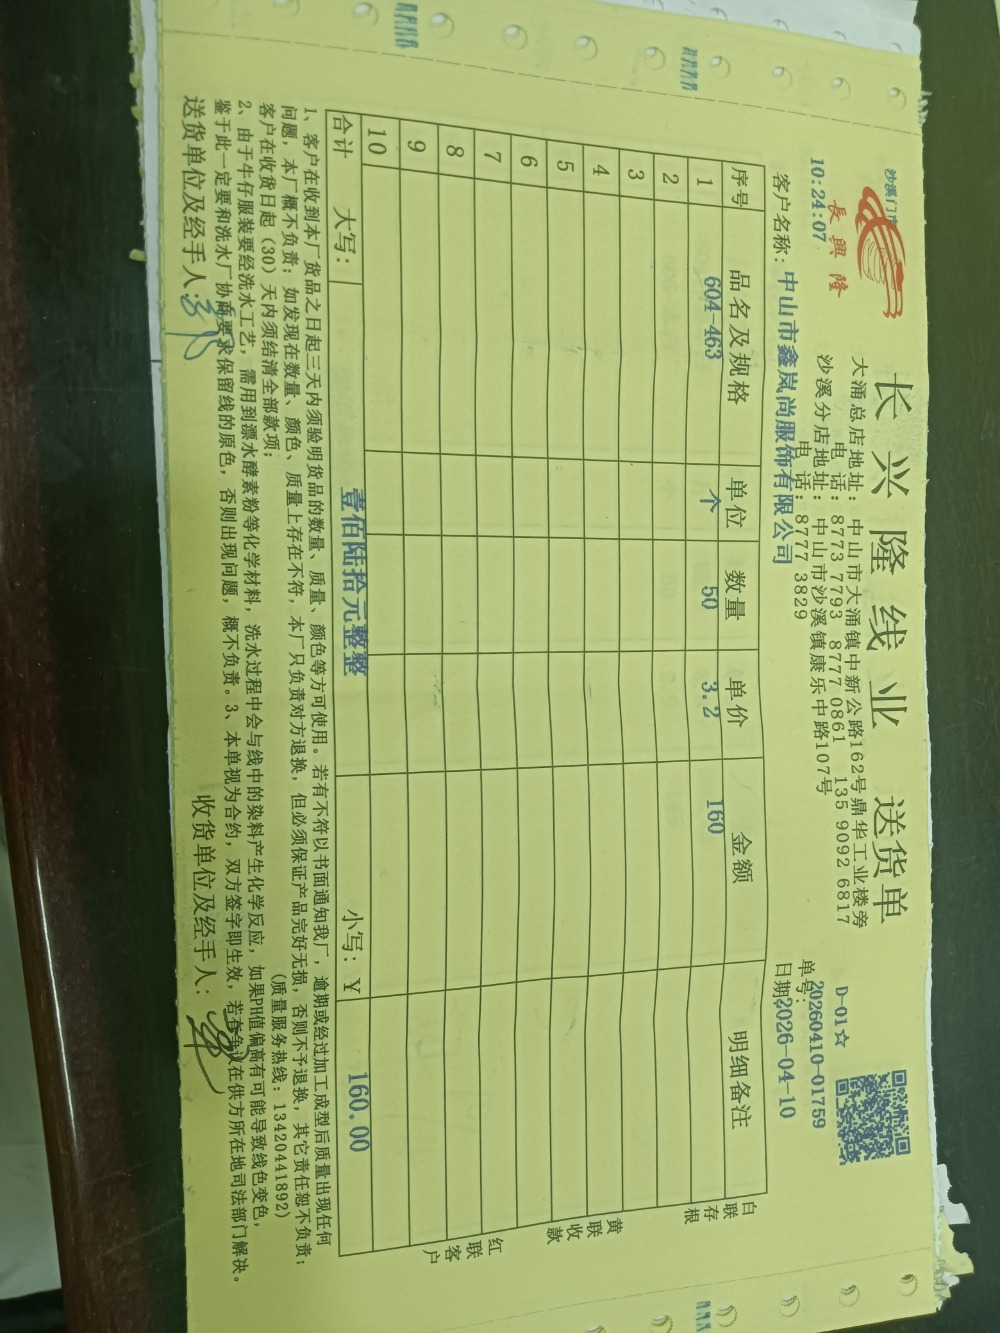 沙溪门市
長興隆
10:24:07
长兴隆线业 送货单
大涌总店地址: 中山市大涌镇中新公路162号鼎华工业楼旁
电 话: 8773 7793 8777 0861 135 9092 6817
沙溪分店地址: 中山市沙溪镇康乐中路107号
电 话: 8777 3829
D-01☆
单号: 20260410-01759
日期: 2026-04-10
客户名称: 中山市鑫岚尚服饰有限公司
序号 品名及规格 单位 数量 单价 金额 明细备注
1 604-463 个 50 3.2 160
2
3
4
5
6
7
8
9
10
合计 大写: 壹佰陆拾元整整 小写: ¥ 160.00
白联存根
黄联收款
红联客户
1、客户在收到本厂货品之日起三天内须验明货品的数量、质量、颜色等方可使用。若有不符以书面通知我厂,逾期或经过加工成型后质量出现任何
问题,本厂概不负责;如发现在数量、颜色、质量上存在不符,本厂只负责对方退换,但必须保证产品完好无损,否则不予退换,其它责任恕不负责;
客户在收货日起(30)天内须结清全部款项; (质量服务热线: 13420441892)
2、由于牛仔服装要经洗水工艺,需用到漂水酵素粉等化学材料,洗水过程中会与线中的染料产生化学反应,如果PH值偏高有可能导致线色变色,
鉴于此一定要和洗水厂协商要求保留线的原色,否则出现问题,概不负责。3、本单视为合约,双方签字即生效,若有争议在供方所在地司法部门解决。
送货单位及经手人: 收货单位及经手人: